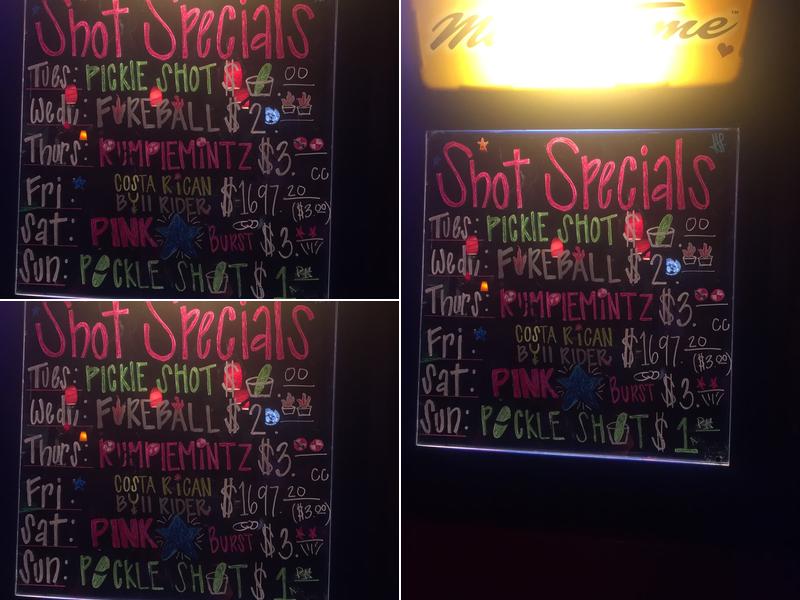 Shot Specials
Tues: PICKlE SHOT $ 00
Wed: FIREBALL $2.
Thurs: RUMPlEMiNTZ $3.
Fri: COSTA RiCAN $1697.20
BUll RIDER ($3.00)
Sat: PINK BURST $3.
Sun: PICKLE SHOT $1
Shot Specials
Tues: PICKlE SHOT $ 00
Wed: FIREBALL $2.
Thurs: RUMPlEMiNTZ $3.
Fri: COSTA RiCAN $1697.20
BUll RIDER ($3.00)
Sat: PINK BURST $3.
Sun: PICKLE SHOT $1
Shot Specials
Tues: PICKlE SHOT $ 00
Wed: FIREBALL $2.
Thurs: RUMPlEMiNTZ $3.
Fri: COSTA RiCAN $1697.20
BUll RIDER ($3.00)
Sat: PINK BURST $3.
Sun: PICKLE SHOT $1